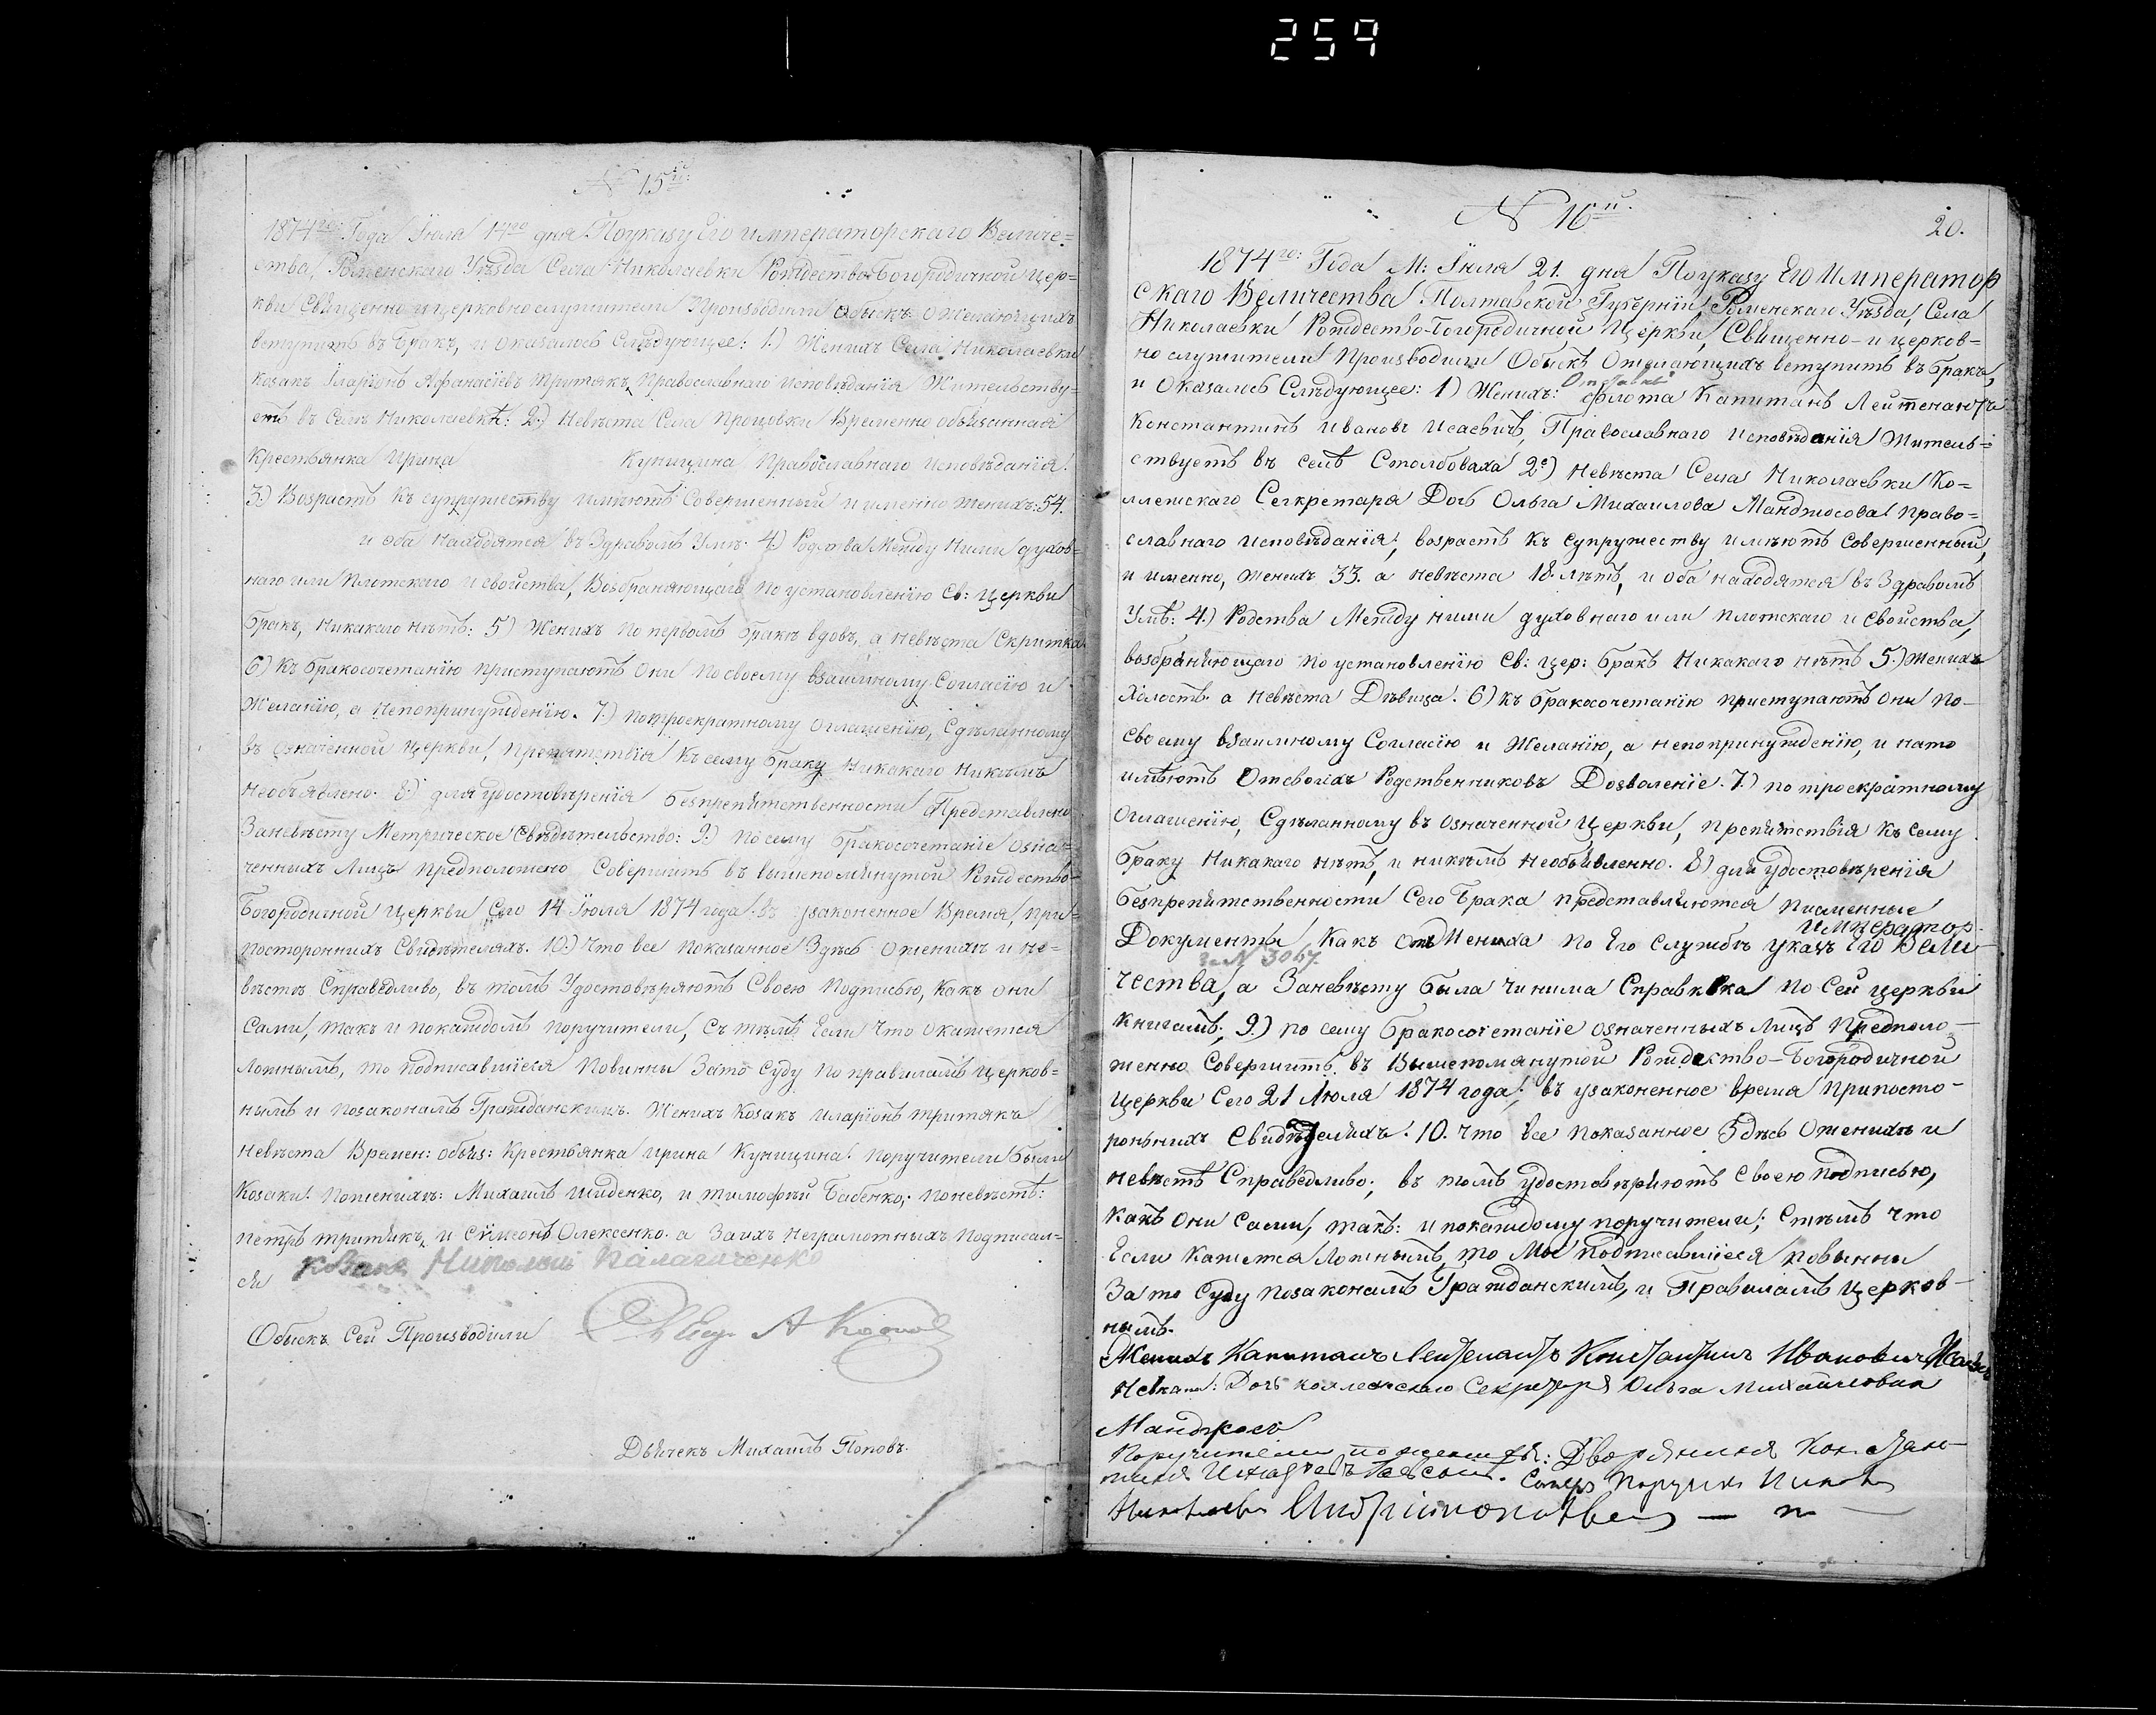 259
N 15й:
1874го: Года Іюля 14го дня Поуказу Его императорскаго Величе=
ства, Роменскаго Уѣзда Села Николаевки Рождество Богородичной цер=
кви Священно и церковнослужители Производили Обыскъ ожелающихъ
вступить въ бракъ, и оказалось Слѣдующее: 1.) Женихъ Села Николаевки
козакъ Іларіонъ Афанасіевъ Тритякъ, Православнаго исповѣданія Жительству=
етъ въ Селѣ Николаевкѣ: 2.) Невѣста Села Процовки Временно обьязанная
крестьянка Ирина Куницина Православнаго исповѣданія.
3.) Возрастъ къ супружеству имѣютъ Совершенный и именно женихъ: 54.
и оба находятся въ Здравомъ Умѣ. 4.) Родства Между Ними духов=
наго или Плотскаго и свойства, Возбраняющаго по установленію Св: Церкви
бракъ, Никакаго нѣтъ: 5) Женихъ по первомъ бракѣ вдовъ, а невѣста Скритка
6) къ бракосочетанію приступаютъ Они по своему взаимному Согласію и
Желанію, а Непопринужденію. 7.) Потроекратному оглашенію, Сдѣланному
въ означенной церкви, Препятствія къ сему браку Никакаго Никѣмъ
Необъявлено. 8.) для удостовѣренія безпрепятственности Представлено
Заневѣсту Метрическое Свѣдѣтельство: 9.) по сему бракосочетаніе озна=
ченныхъ Лицъ предположено Совершить въ вышепомянутой Рождество-
Богородичной Церкви Сего 14 Іюля 1874 года въ узаконенное Время, при=
постороннихъ Свидѣтеляхъ. 10.) Что все показанное Здѣсь оженихѣ и не=
вѣстѣ Справедливо, въ томъ Удостовѣряютъ Своею Подписью, какъ они
Сами, такъ и покаждомъ поручители, съ тѣмъ Если Что окажется
Ложнымъ, то подписавшіеся повинны Зато Суду по правиламъ церков=
нымъ и позаконамъ Гражданскимъ. Женихъ козакъ Иларіонъ Тритякъ
невѣста Времен: обьяз: крестьянка Ирина Куницина. Поручители были
козаки. Поженихѣ: Михаилъ Шиденко, и Тимофѣй Бабенко; поневѣстѣ:
Петръ Тритякъ, и Симеонъ Олексенко. а Заихъ Неграмотныхъ подписал=
ся козакъ Николай Палагиченко
Обыскъ Сей Производили
Дьячекъ Михаилъ Поповъ.
N 16й.
20.
1874го: Года М: Іюля 21. дня Поуказу Его Император
скаго Величества Полтавской Губерніи, Роменскаго Уѣзда, Села
Николаевки Рождество-Богородичной Церкви, Священно- и церков=
но служители Производили Обыскъ Ожелающихъ вступить въ бракъ,
и Оказалось Слѣдующее: 1) Женихъ: флота Капитанъ Лейтенантъ
Константинъ Ивановъ Исаевичъ, Православнаго исповѣданія Житель=
ствуетъ въ селѣ Столбоваха 2е) Невѣста Села Николаевки Ко=
ллежскаго Секретаря Дочь Ольга Михаилова Манджосова право=
славнаго исповѣданія, возрастъ къ супружеству имѣютъ совершенный,
и именно, женихъ 33. а невѣста 18. лѣтъ, и оба находятся въ Здравомъ
Умѣ: 4.) Родства Между ними духовнаго или плотскаго и Свойства,
возбраняющаго по установленію Св: цер: бракъ Никакаго нѣтъ 5.) Женихъ
Холостъ а невѣста Дѣвица. 6) къ бракосочетанію приступаютъ они по-
Своему взаимному Согласію и Желанію, а непопринужденію, и нато
имѣютъ Отсвоихъ Родственниковъ Дозволеніе. 7.) по троекратному
Оглашенію, Сдѣланному въ означенной Церкви, препятствія къ сему
браку Никакаго нѣтъ, и никѣмъ Необъявленно. 8) для удостовѣренія
безпрепятственности Сего брака представляются писменные
Документы Какъ Отъ Жениха по Его службѣ указъ Его Император. Вели
за N 3067.
чества, а Заневѣсту была чинима Справкака по Сей церкви
книгамъ; 9.) по сему бракосочетаніе означенныхъ лицъ предполо-
женно Совершить въ Вышепомянутой Рождество-Богородичной
Церкви Сего 21 Іюля 1874 года, въ узаконенное время припосто-
роньнихъ Свидѣтеляхъ. 10. что все показанное Здѣсь Оженихѣ и
невѣстѣ Справедливо; въ томъ удостовѣряютъ Своею подписью,
какъ Они Сами, такъ: и покаждому поручители; Стѣмъ что
Если кажется Ложнымъ, то Мы подписавшіеся повынны
Зато Суду позаконамъ Гражданскимъ, и Правиламъ церков-
нымъ.
Женихъ Капитанъ Лейтенантъ Константинъ Ивановичъ Исаевич
Невѣста: Дочь коллежскаго Секретаря Ольга Михайловна
Манджос
Поручители по женихѣ: Дворянинъ Констан-